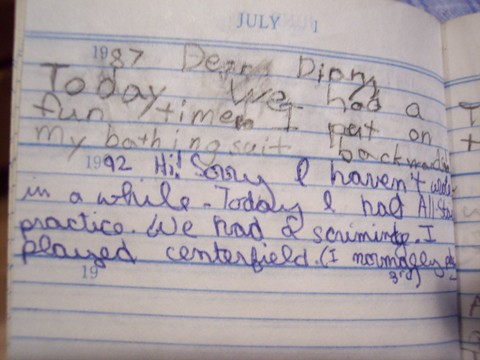 JULY 1
1987 Deary Diary
Today We had a
fun time I put on
my bathing suit backwards
1992 Hi! Sorry I haven't
in a while. Today I had All-Star
practice. We had a scriminge. I
played centerfield. (I normally
3rd)
19